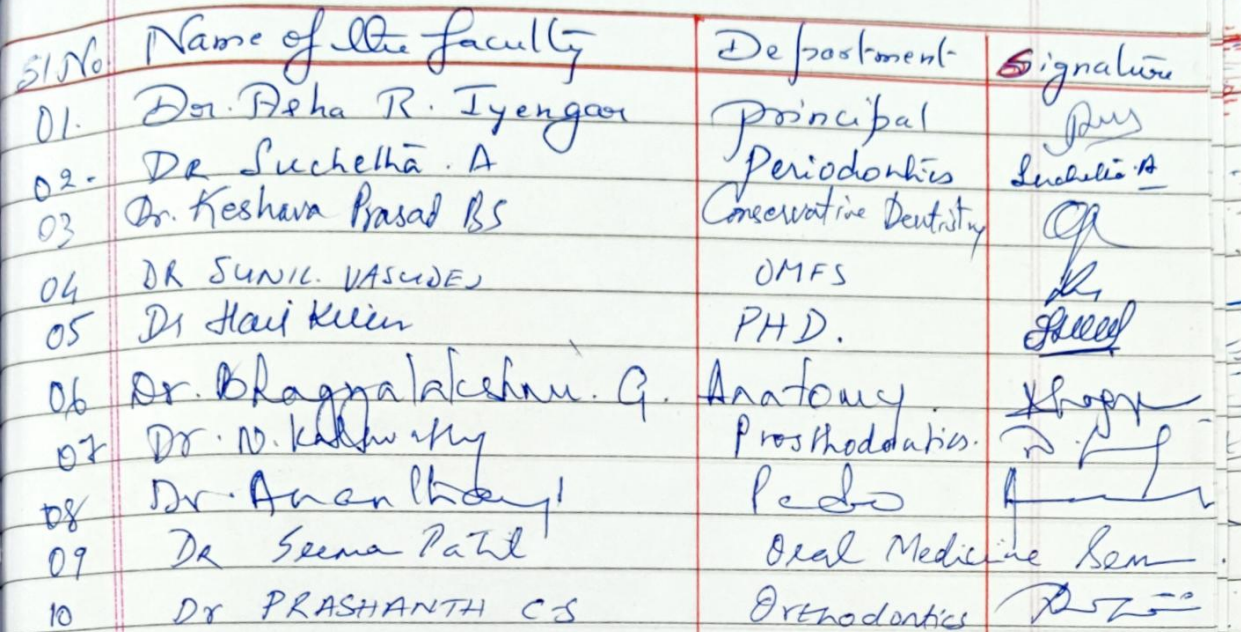 Sl No Name of the faculty Department Signature
01. Dr. Asha R. Iyengar Principal
02. DR Suchetha . A Periodontics Suchetha A
03 Dr. Keshava Prasad BS Conservative Dentistry
04 DR SUNIL. VASUDEV OMFS
05 Dr Hari Kiran PHD.
06 Dr. Bhagyalakshmi. G. Anatomy.
07 Dr. N. Prosthodontics.
08 Dr. Pedo
09 DR Seema Patil Oral Medicine Seem
10 Dr PRASHANTH C S Orthodontics